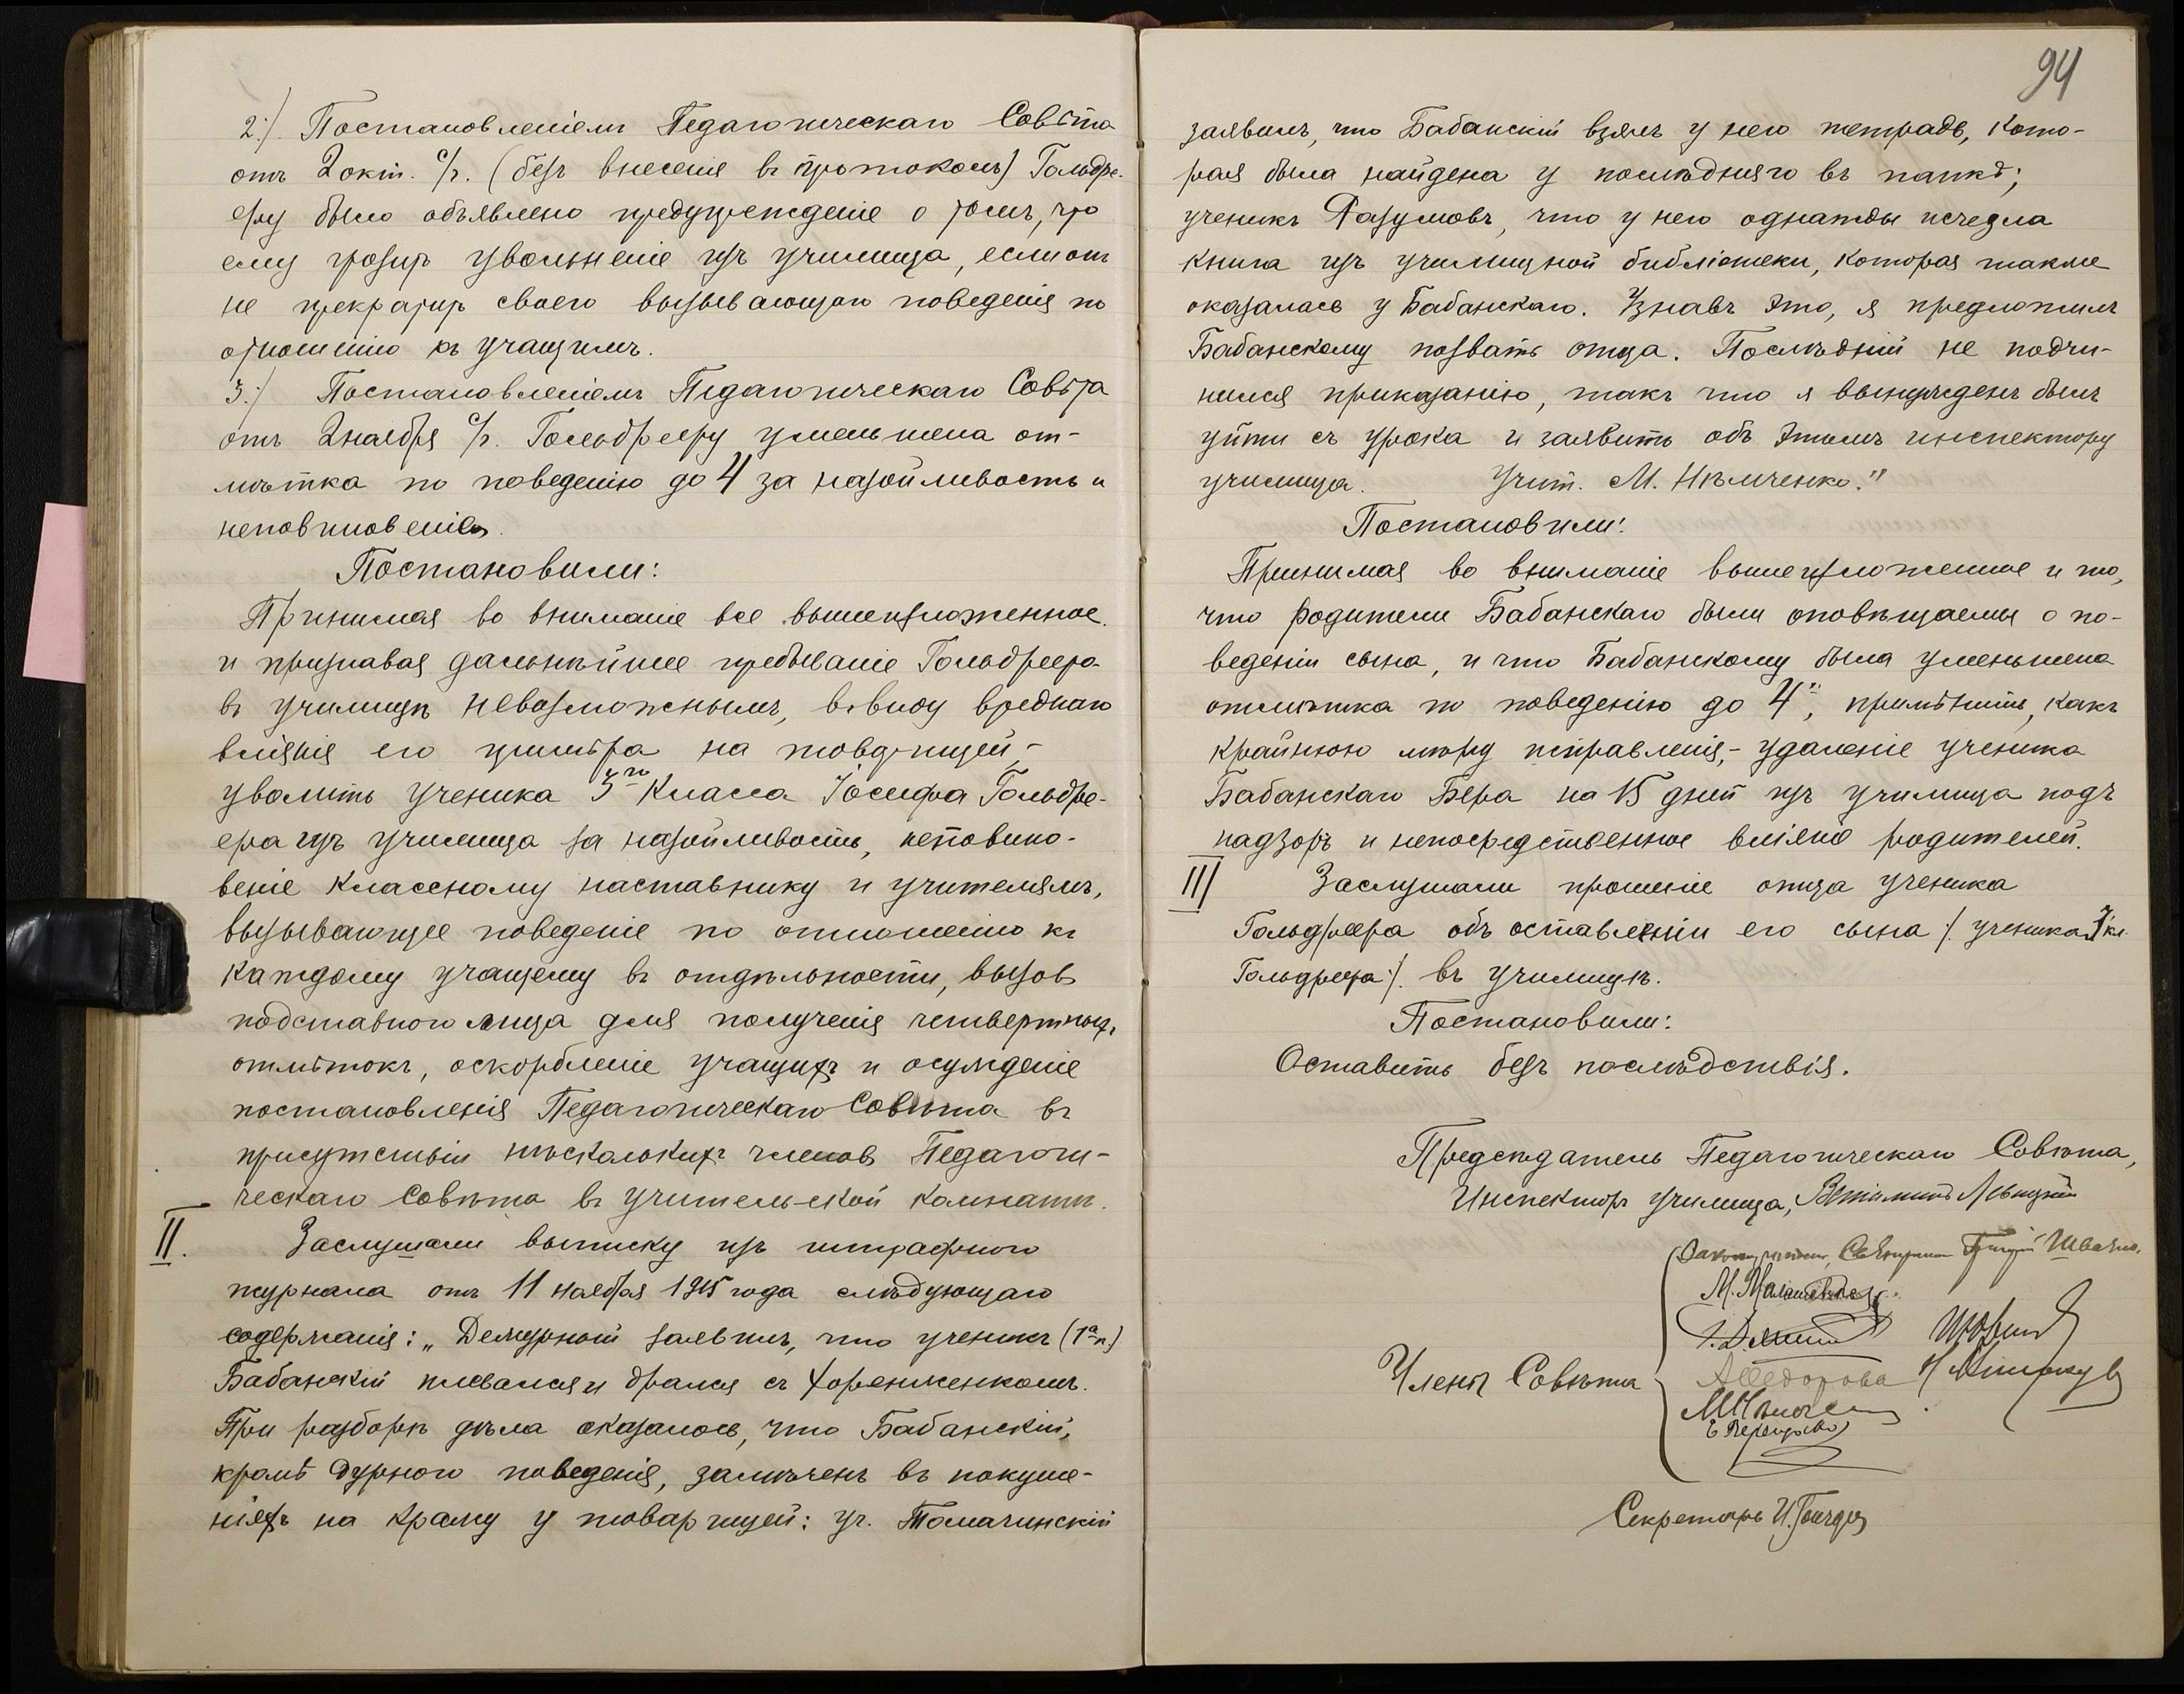 2:/. Постановленіемъ Педагогическаго Совѣта
отъ 2 окт. с/г. (безъ внесенія въ протоколъ) Гольдре-
еру было объявлено предупрежденіе о томъ, что
ему грозитъ увольненіе изъ училища, если онъ
не прекратитъ своего вызывающаго поведенія по
отношенію къ учащимъ.
3:/ Постановленіемъ Педагогическаго Совѣта
отъ 2 ноября с/г. Гольдрееру уменьшена от-
мѣтка по поведенію до 4 за назойливость и
неповиновеніе.
Постановили:
Принимая во вниманіе все вышеизложенное
и признавая дальнѣйшее пребываніе Гольдреера
въ училищѣ невозможнымъ, въ виду вреднаго
вліянія его примѣра на товарищей,-
уволить ученика 3го класса Іосифа Гольдре-
ера изъ училища за назойливость, неповино-
веніе классному наставнику и учителямъ,
вызывающее поведеніе по отношенію къ
каждому учащему въ отдѣльности, вызовъ
подставного лица для полученія четвертныхъ
отмѣтокъ, оскорбленіе учащихъ и осужденіе
постановленія Педагогическаго Совѣта въ
присутствіи нѣсколькихъ членовъ Педагоги-
ческаго Совѣта въ учительской комнатѣ.
II. Заслушали выписку изъ штрафного
журнала отъ 11 ноября 1915 года слѣдующаго
содержанія: „Дежурный заявилъ, что ученикъ (1а к.)
Бабанскій плевался и дрался съ Хореншенкомъ.
При разборѣ дѣла оказалось, что Бабанскій,
кромѣ дурного поведенія, замѣченъ въ покуше-
ніяхъ на кражу у товарищей: уч. Томачинскій
94
заявилъ, что Бабанскій взялъ у него тетрадь, кото-
рая была найдена у послѣдняго въ папкѣ;
ученикъ Разумовъ, что у него однажды исчезла
книга изъ училищной библіотеки, которая также
оказалась у Бабанскаго. Узнавъ это, я предложилъ
Бабанскому позвать отца. Послѣдній не подчи-
нился приказанію, такъ что я вынужденъ былъ
уйти съ урока и заявить объ этомъ инспектору
училища. Учит. М. Нѣмченко."
Постановили:
Принимая во вниманіе вышеизложенное и то,
что родители Бабанскаго были оповѣщаемы о по-
веденіи сына, и что Бабанскому была уменьшена
отмѣтка по поведенію до 4", примѣнить, какъ
крайнюю мѣру исправленія,- удаленіе ученика
Бабанскаго Бера на 15 дней изъ училища подъ
надзоръ и непосредственное вліяніе родителей.
III Заслушали прошеніе отца ученика
Гольдреера объ оставленіи его сына /. ученика 3 кл.
Гольдреера ./. въ училищѣ.
Постановили:
Оставить безъ послѣдствія.
Предсѣдатель Педагогическаго Совѣта,
Инспекторъ училища,
Законоучитель, Священникъ
Члены Совѣта
А. Федорова
М. Нѣмченко
Секретарь И.